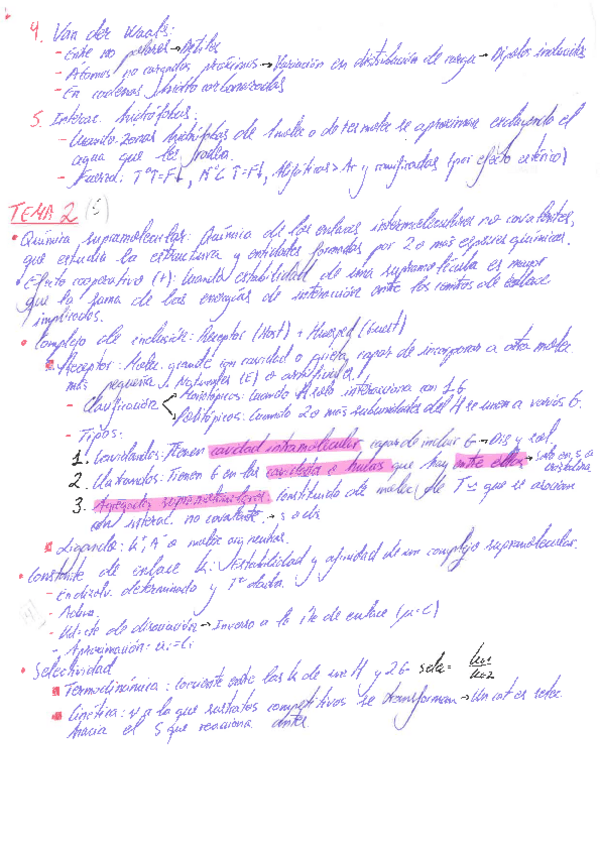 4. Van der Waals:
- Entre no polares → Débiles
- Átomos no cargados próximos → Variación en distribución de carga → Dipolos inducidos
- En cadenas hidrocarbonadas
5. Interac. hidrófobas:
- Cuando zonas hidrófobas de 1 molec o dos molec se aproximan excluyendo el
agua que las rodea.
- Fuerza: Tª↑=F↓, NºC ↑=F↓, Alifáticas > Ar y ramificadas (por efecto estérico)
TEMA 2
• Química supramolecular: Química de los enlaces intermoleculares no covalentes,
que estudia la estructura y entidades formadas por 2 o más especies químicas.
• Efecto cooperativo (+): Cuando estabilidad de una supramolécula es mayor
que la suma de las energías de interacción entre los centros de enlace
implicados.
• Complejo de inclusión: Receptor (Host) + Huésped (Guest)
Receptor: Molec. grande con cavidad o grieta, capaz de incorporar a otra molec
más pequeña. Naturales (E) o artificial.
- Clasificación
Monotópicos: Cuando H solo interacciona con 1 G
Politópicos: Cuando 2 o más subunidades del H se unen a varios G.
- Tipos:
1. Cavitandos: Tienen cavidad intramolecular capaz de incluir G → Dis y sol.
2. Clatrandos: Tienen G en las cavidades o huecos que hay entre ellos → solo en s
cristalina
3. Agregados supramoleculares: Constituido de molec de que se asocian
con interac. no covalente → s o dis
Ligando: o molec orgánicas.
• Constante de enlace K: Estabilidad y afinidad de un complejo supramolecular.
- En disolv. determinado y Tª dada.
- Adim.
- cte de disociación → Inverso a la cte de enlace
- Aproximación: ai = ci
• Selectividad
Termodinámica: cociente entre las K de un H y 2 G
Cinética: v a la que sustratos competitivos se transforman → Un cat es selec
hacia el S que reacciona antes